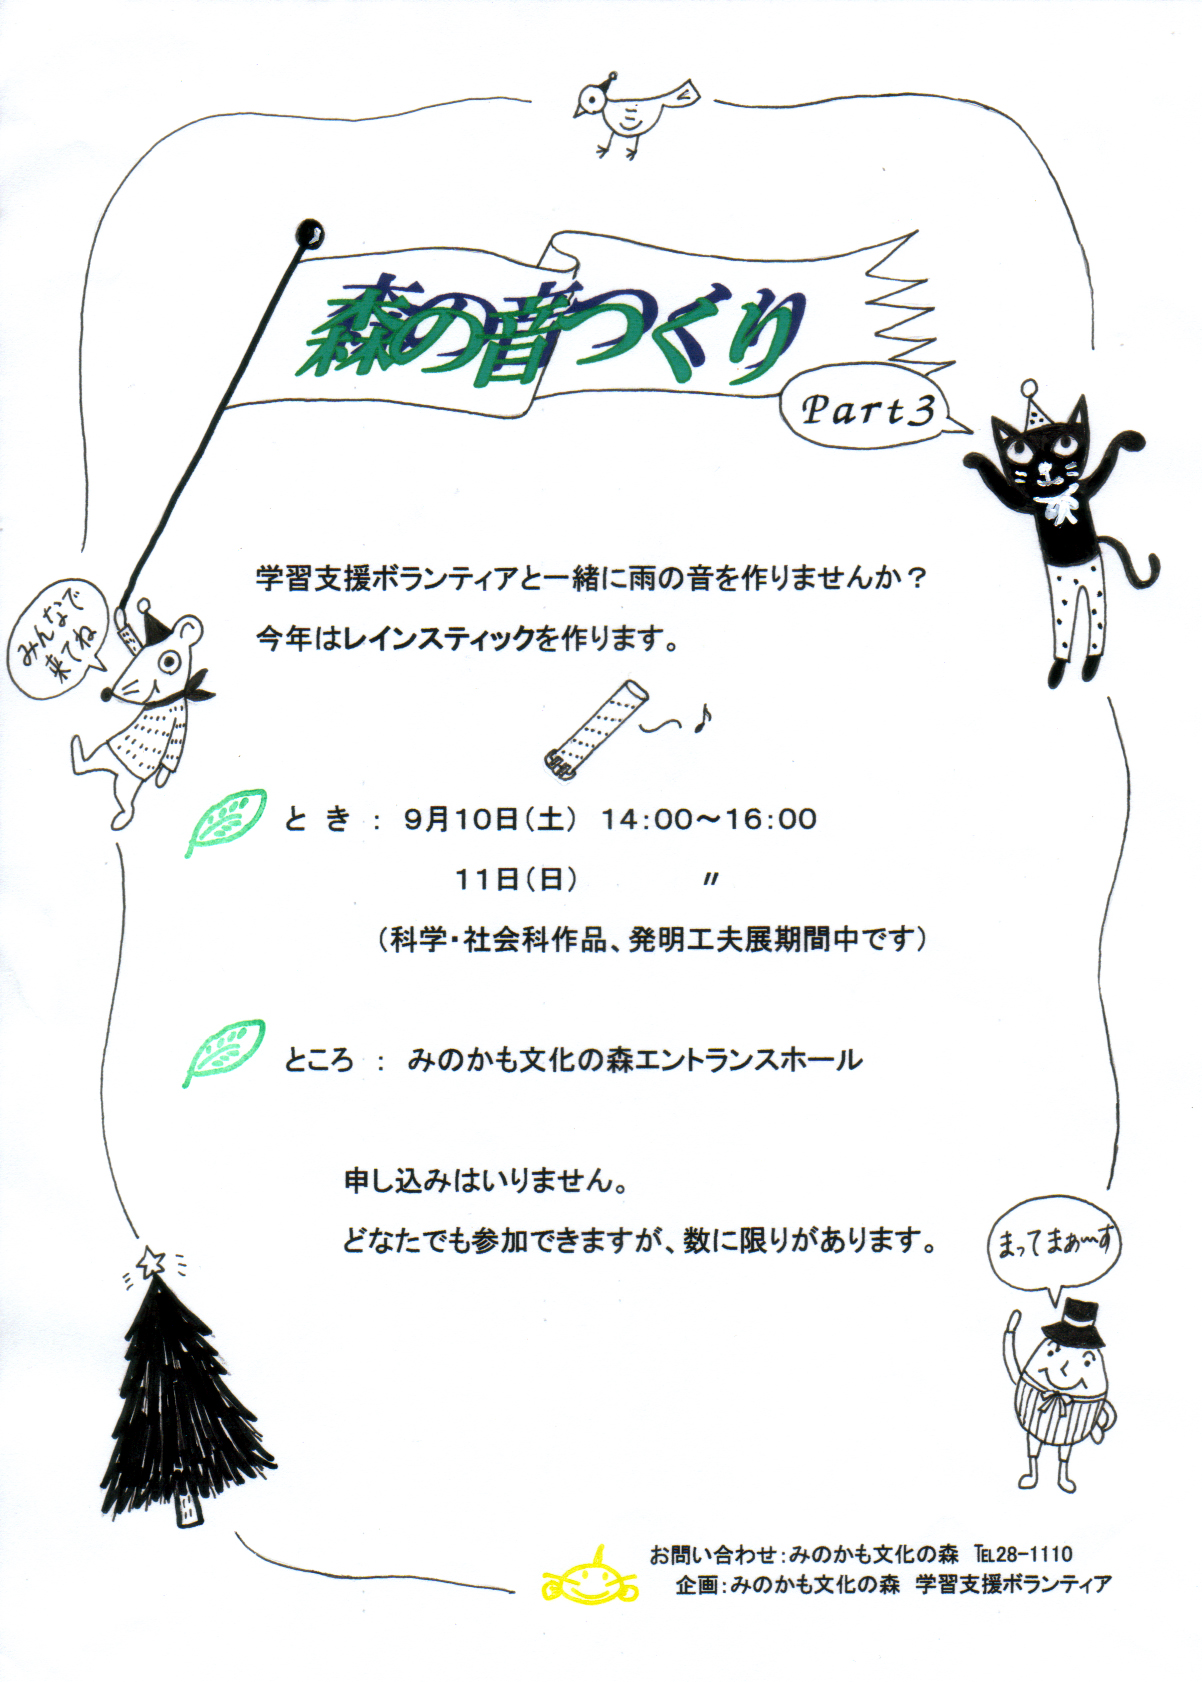 森の音つくり
Part3
みんなで
来てね
学習支援ボランティアと一緒に雨の音を作りませんか？
今年はレインスティックを作ります。
とき： 9月10日(土) 14:00～16:00
11日(日) 〃
(科学・社会科作品、発明工夫展期間中です)
ところ： みのかも文化の森エントランスホール
申し込みはいりません。
どなたでも参加できますが、数に限りがあります。
まってまぁ〜す
お問い合わせ：みのかも文化の森 ℡28-1110
企画：みのかも文化の森 学習支援ボランティア